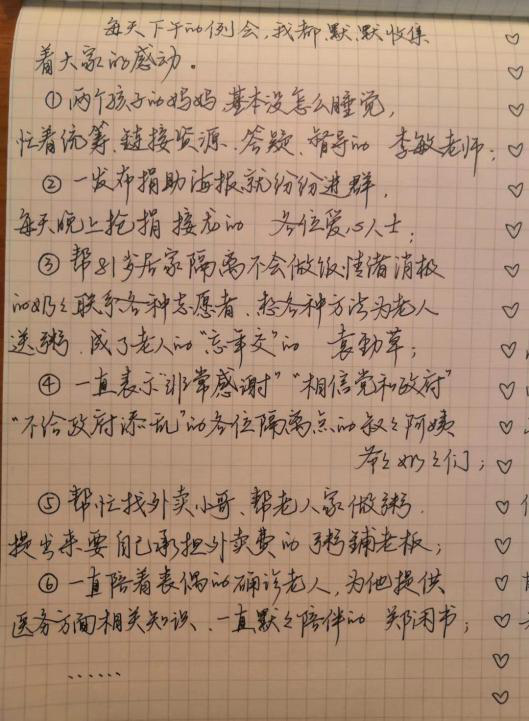 每天下午的例会,我都默默收集
着大家的感动。
① 两个孩子的妈妈,基本没怎么睡觉,
忙着统筹、链接资源、答疑、督导的 李敏老师;
② 一发布捐助海报就纷纷进群,
每天晚上抢捐 接龙的 各位爱心人士;
③ 帮81岁居家隔离不会做饭情绪消极
的奶々联系各种志愿者、想各种方法为老人
送粥、成了老人的“忘年交”的 袁劲草;
④ 一直表示“非常感谢”“相信党和政府”
“不给政府添乱”的各位隔离点的叔々阿姨
爷々奶々们;
⑤ 帮忙找外卖小哥、帮老人家做粥、
提出来要自己承担外卖费的 粥铺老板;
⑥ 一直陪着丧偶的确诊老人,为他提供
医务方面相关知识、一直默々陪伴的 郑闲书;
……